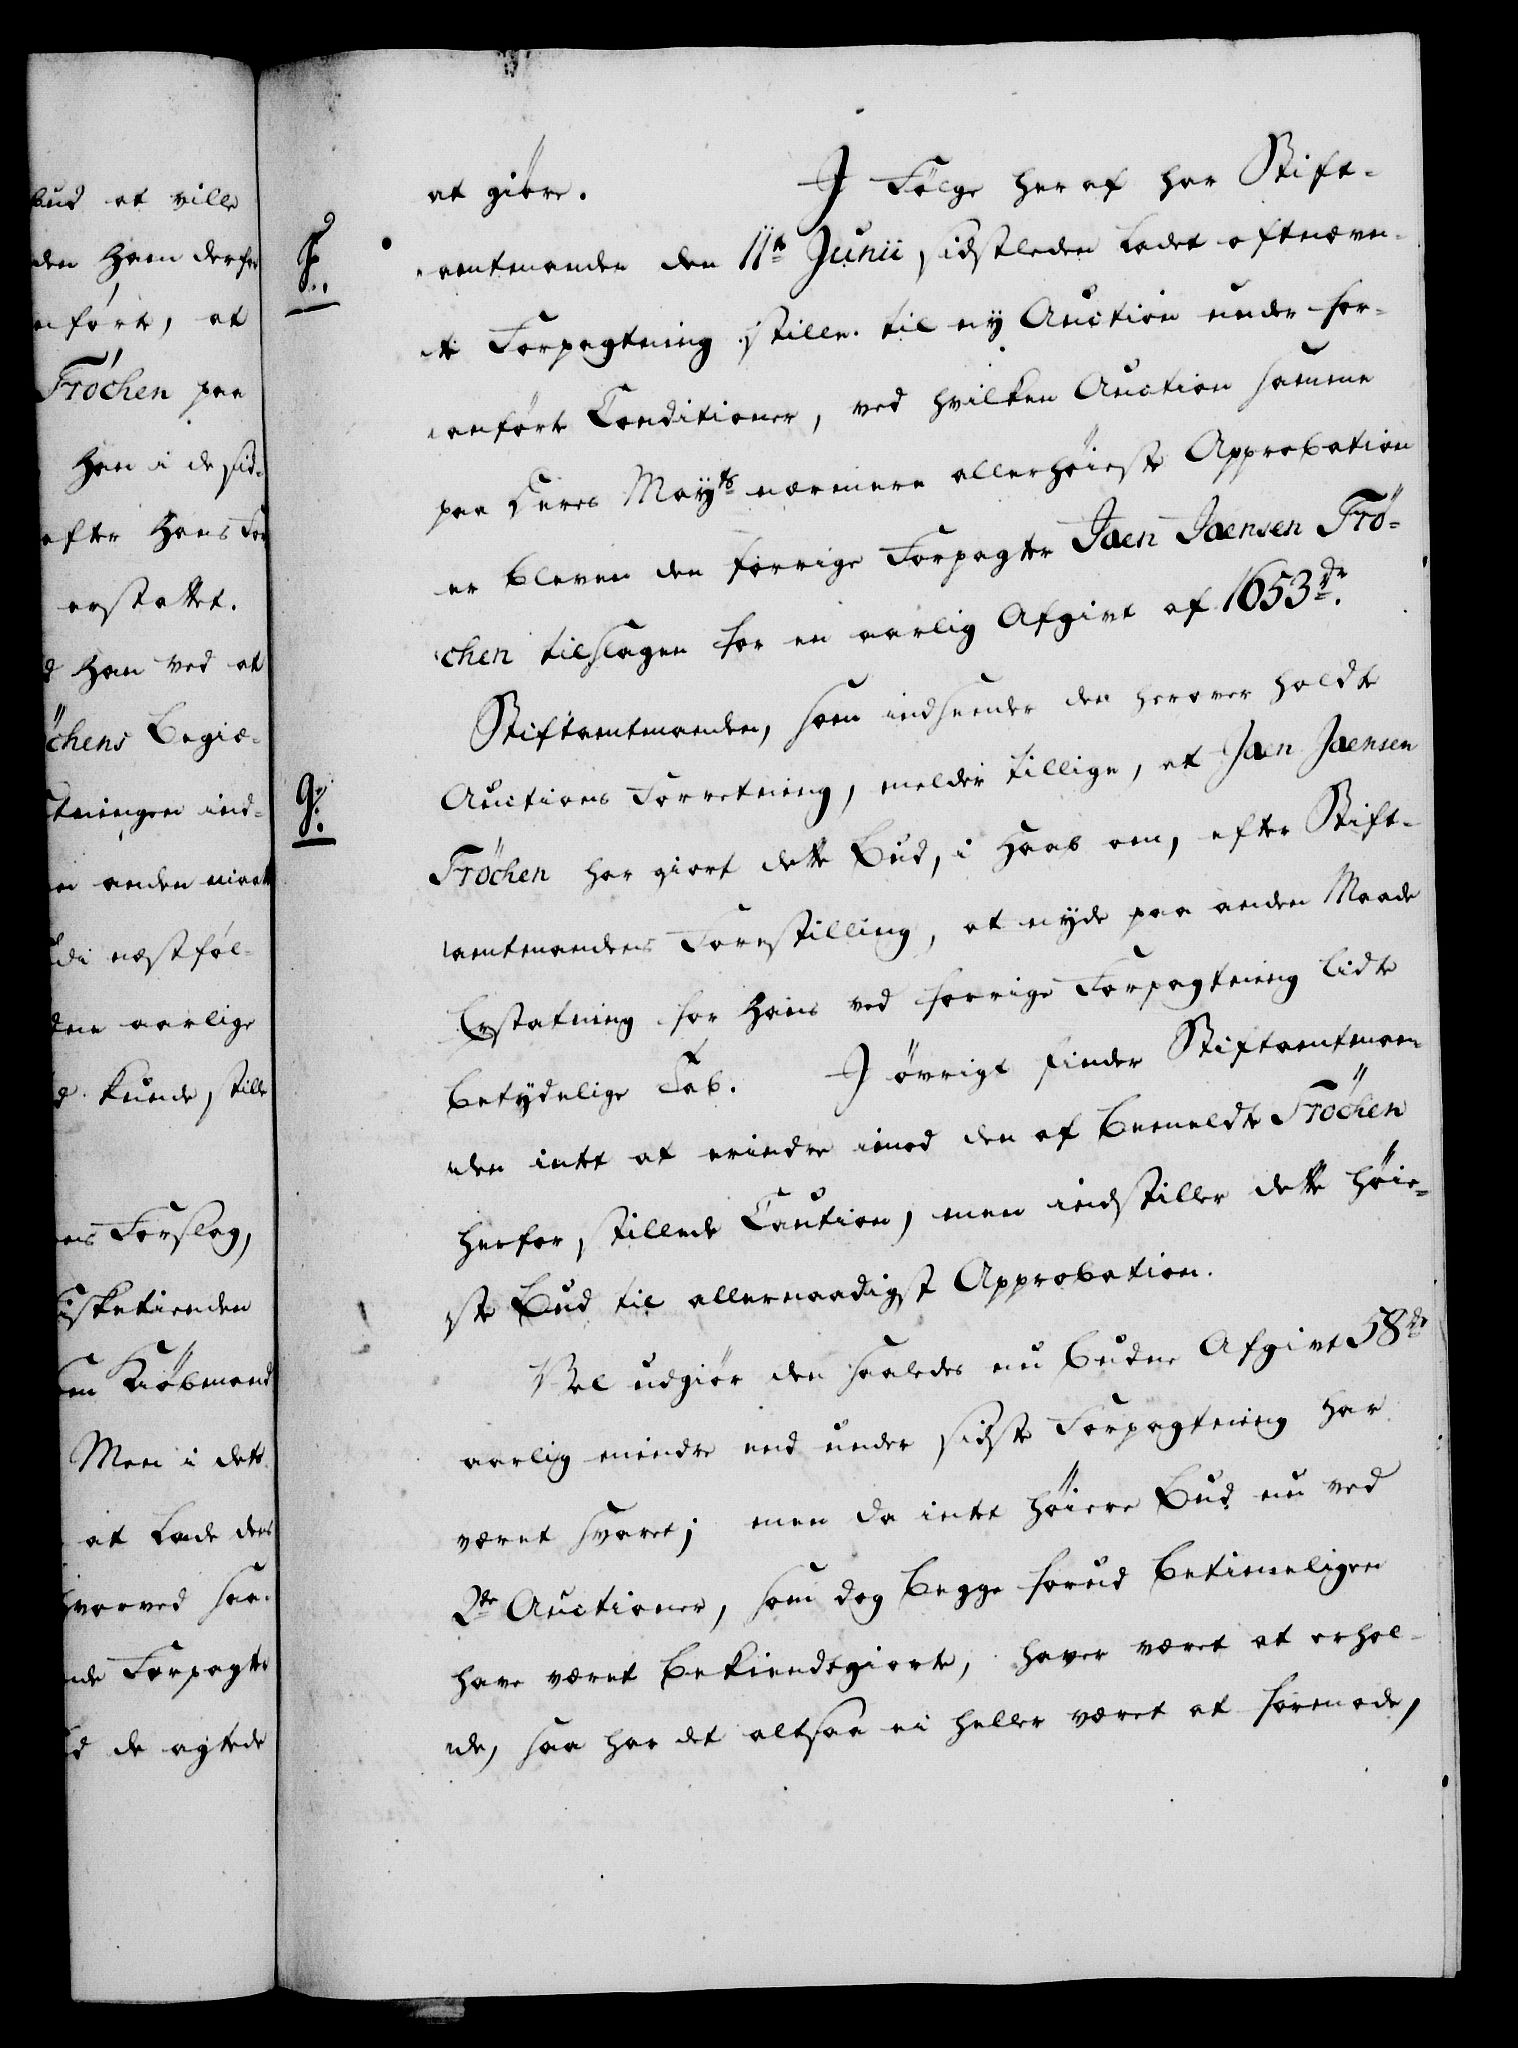 bud at ville
den Ham derfor
nført, at
Tröchen paa
Han i de sid-
efter Hans For
erstattet.
d Han ved at
öchens Begiæ-
gtningen ind-
en anden maade
di næstføl-
den aarlige
d kunde stille
ens Forslag,
isketienden
en Kiöbmand
Men i dette
at lade den
hvorved saa-
nde Forpagte
d de agtede
at giöre. I Fölge her af har Stift-
F.
amtmanden den 11te Junii sidstleden ladet oftnævn-
te Forpagtning stille til ny Auction under for-
anförte Conditioner, ved hvilken Auction samme
paa Deres Mayts nærmere allerhöieste Approbation
er bleven den forrige Forpagter Jaen Jaensen Trö-
chen tilslagen for en aarlig Afgivt af 1653 rdr.
Stiftamtmanden, som indsender den herover holdte
G.
Auctions Forretning, melder tillige, at Jaen Jaensen
Tröchen har giort dette Bud, i Haab om, efter Stift-
amtmandens Forestilling, at nyde paa anden Maade
Erstatning for Hans ved forrige Forpagtning lidte
betydelige Tab. I övrigt finder Stiftamtman-
den intet at erindre imod den af bemeldte Tröchen
herfor stillede Caution, men indstiller dette höie-
ste Bud til allernaadigst Approbation.
Vel udgiör den saaledes nu budne Afgivt 58 rdr
aarlig mindre end under sidste Forpagtning har
været svaret; men da intet höiere Bud nu ved
2de Auctioner, som dog begge forud betimeligen
have været bekiendtgiorte, haver været at erhol-
de, saa har det altsaa ei heller været at formode,